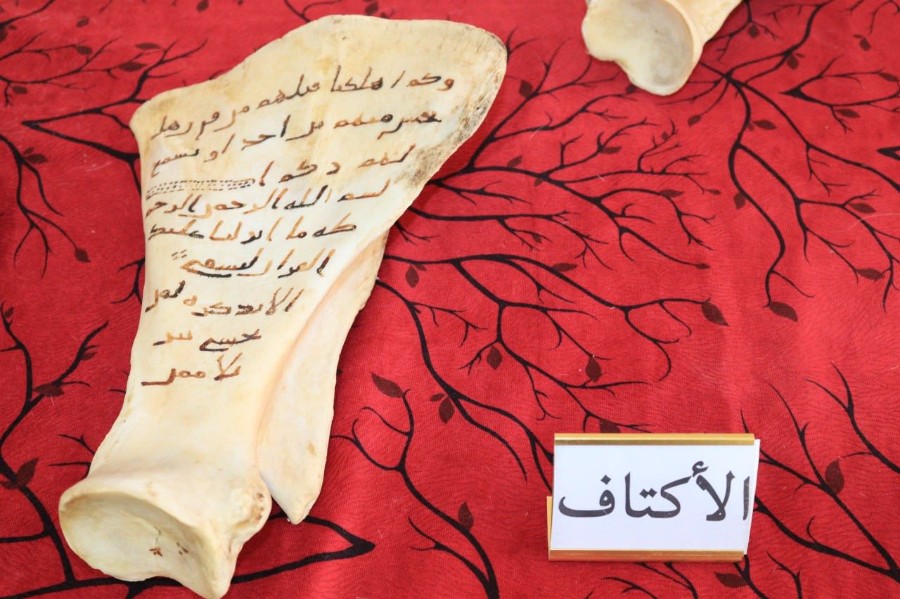 وكم اهلكنا قبلهم من قرن هل
تحس منهم من احد او تسمع
لهم ركزا
بسم الله الرحمن الرحيم
طه ما انزلنا عليك
القران لتشقى
الا تذكرة لمن
يخشى تنز
لا ممن
الأكتاف